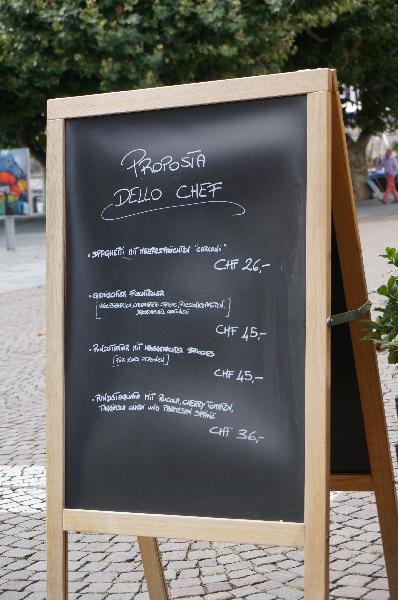 PROPOSTA
DELLO CHEF
• SPAGHETTI MIT MEERESFRÜCHTEN
CHF 26,-
• GEMISCHTER FISCHTELLER
CHF 45,-
• RINDSTATAR MIT HAUSGEMACHTER
[FÜR ZWEI PERSONEN]
CHF 45,-
• RINDSTAGLIATA MIT RUCOLA, CHERRY TOMATEN,
TAGGIASCA OLIVEN UND PARMESAN SPÄNE
CHF 36,-